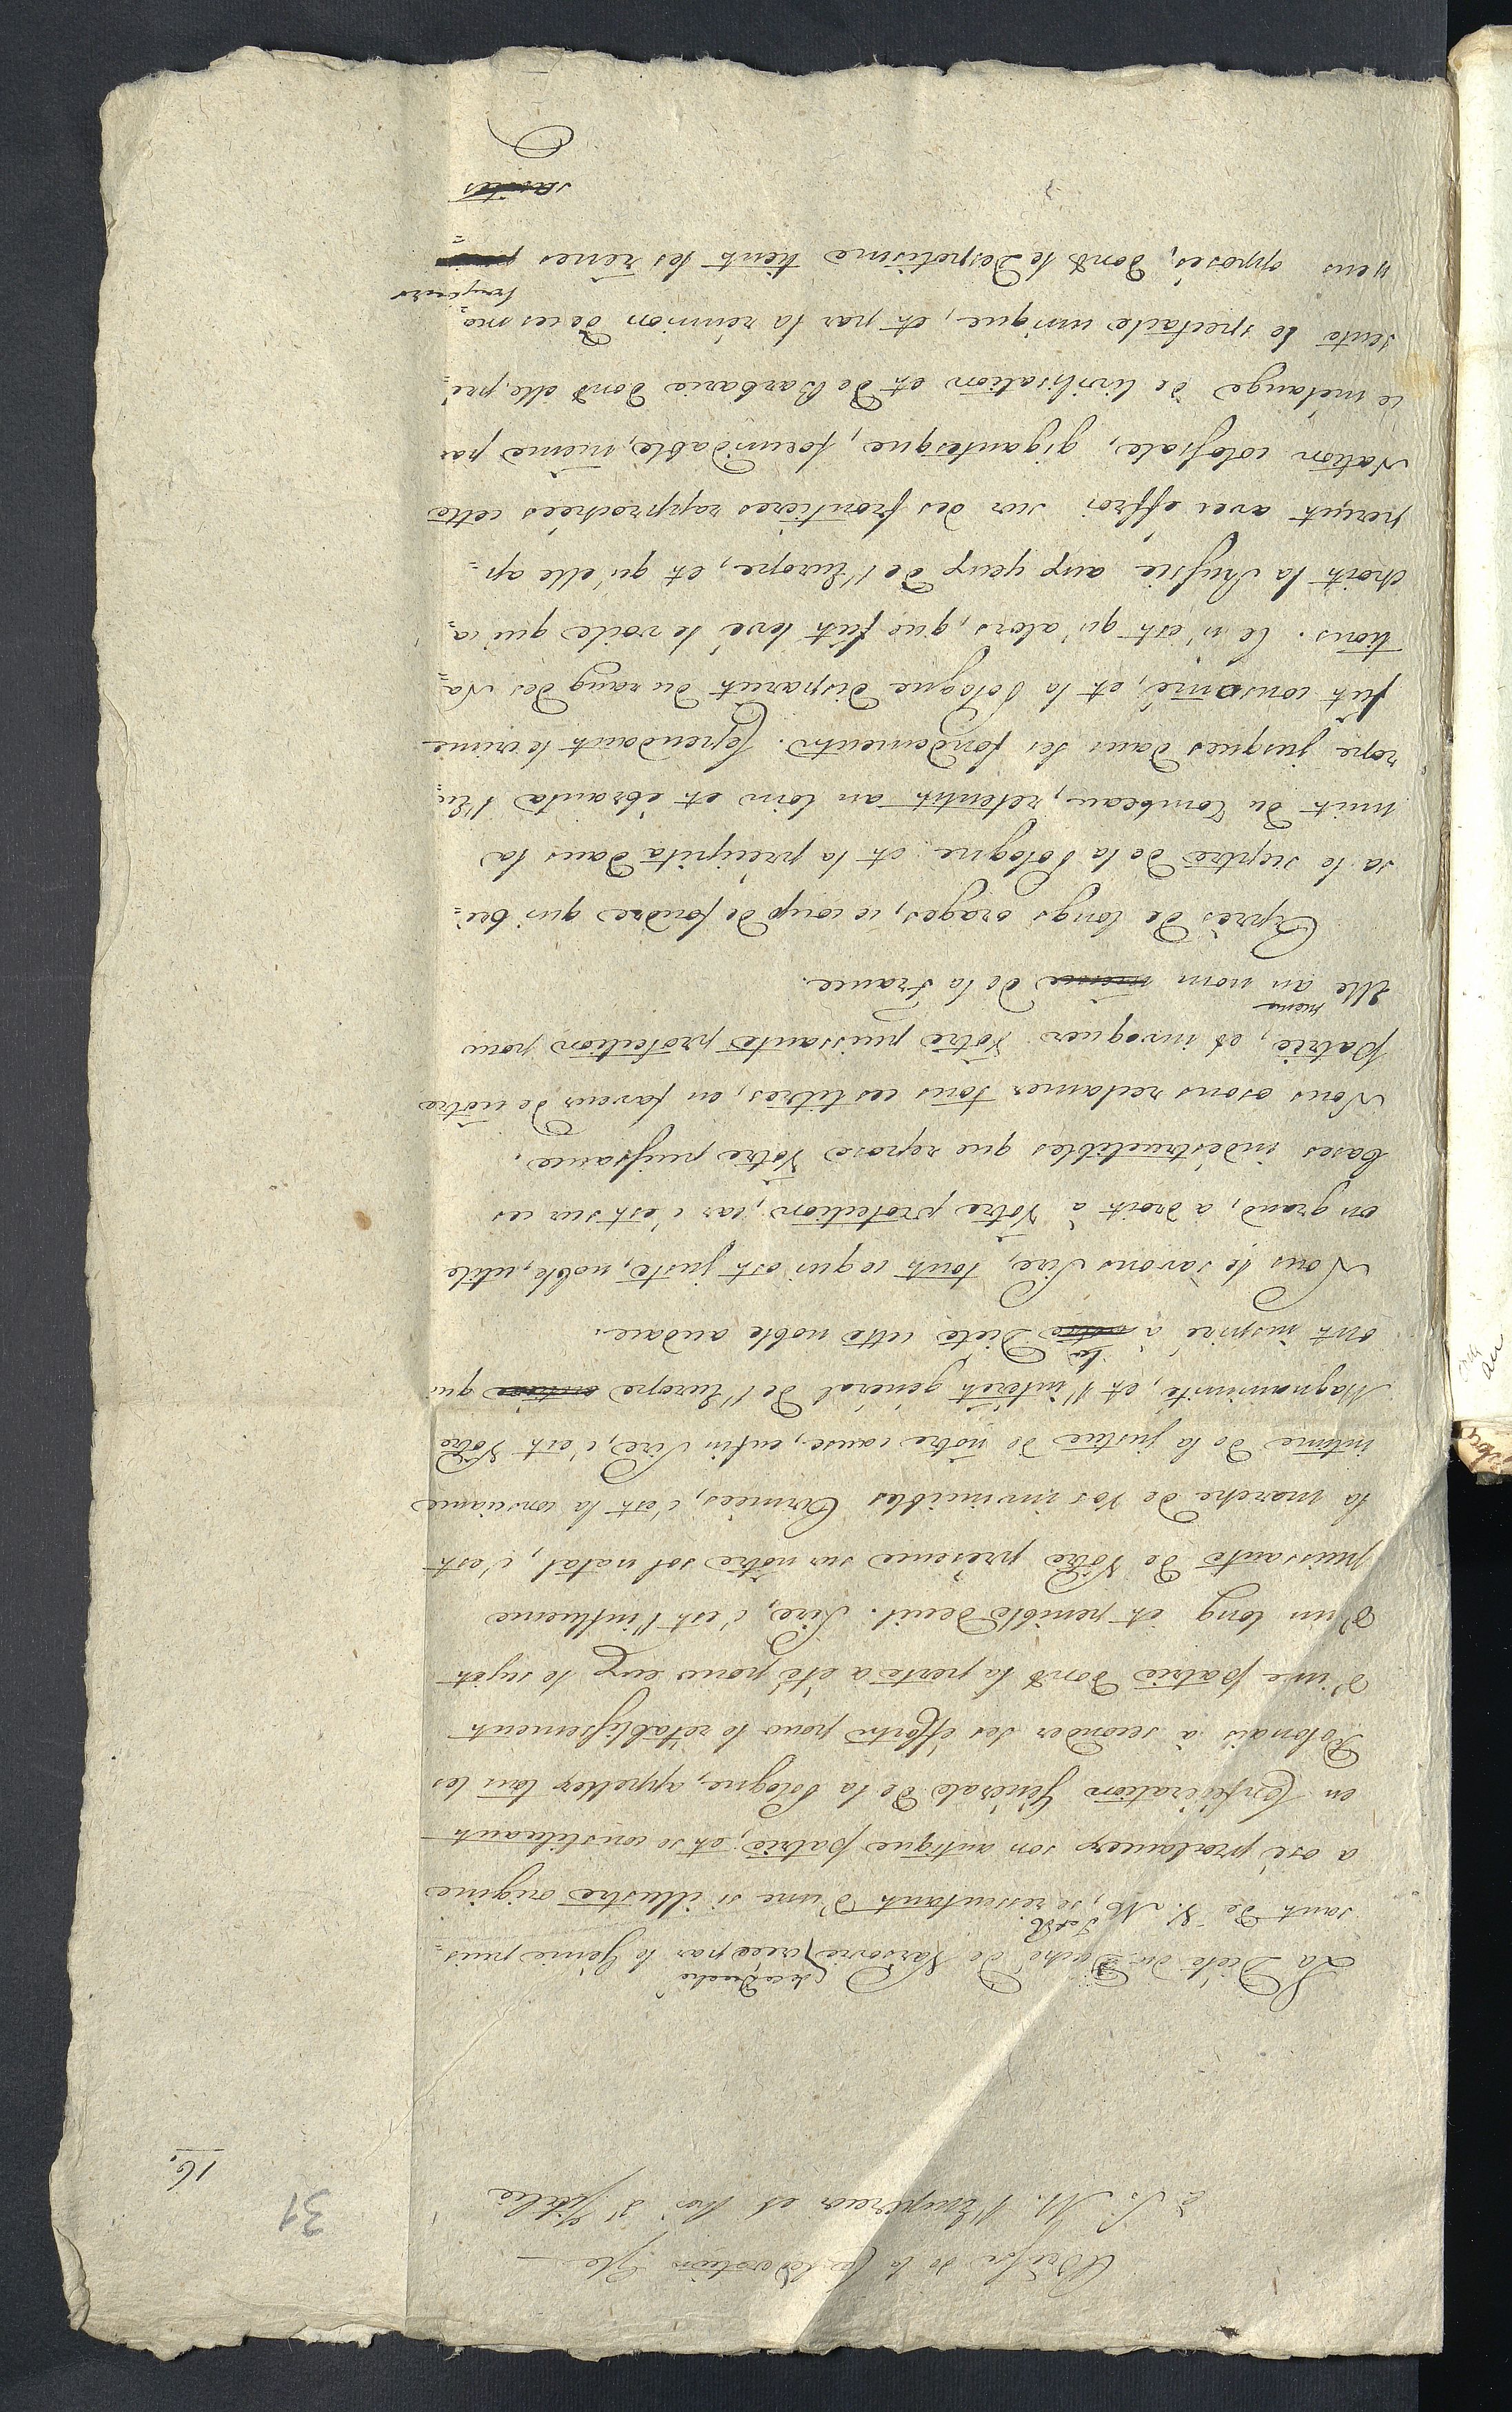 31
16.
Adresse de la Confédération Gle
à S. M. l'Empereur et Roi d'Italie
La Diète du Duché de Varsovie (ce Duché créé par le Génie puis=
sant de V. M. I et R. se ressentant d'une si illustre origine
a osé proclamer son antique patrie, et se constituant
en Conféderation Générale de la Pologne, appeller tous les
Polonais à seconder ses efforts pour le rétablissement
d'une patrie dont la perte a été pour eux le sujet
d'un long et penible deuil. Sire, c'est l'influence
puissante de Vôtre présence sur nôtre sol natal, c'est
la marche de Vos invincibles Armées, c'est la conscience
intime de la justice de nôtre cause, enfin Sire, c'est Vôtre
Magnanimité, et l'intérêt général de l'Europe entière qui
ont inspiré à nôtre la Diète cette noble audace.
Nous le savons Sire, tout ce qui est juste, noble, utile
ou grand, a droit à Vôtre protection, car c'est sur ces
bases indestructibles que repose Vôtre puissance.
Nous osons reclamer tous ces titres, en faveur de nôtre
patrie, et invoquer Vôtre puissante protection pour
Elle au nom même même de la France.
Après de longs orages, ce coup de foudre qui bri=
sa le sceptre de la Pologne et la précipita dans la
nuit du tombeau, retentit au loin et ébranla l'Eu=
rope jusques dans ses fondements. Cependant le crime
fut consomé, et la Pologne disparut du rang des Na=
tions. Ce n'est qu'alors, que fut levé le voile qui ca=
choit la Russie aux yeux de l'Europe, et qu'elle ap=
perçut avec effroi sur des frontières rapprochées cette
Nation colossale, gigantesque, formidable, même par
ce mélange de Civilisation et de Barbarie dont elle pré=
sente le spectacle unique, et par la réunion de ces mo=
yens opposés, dont le Despotisme tient les rênes toujours